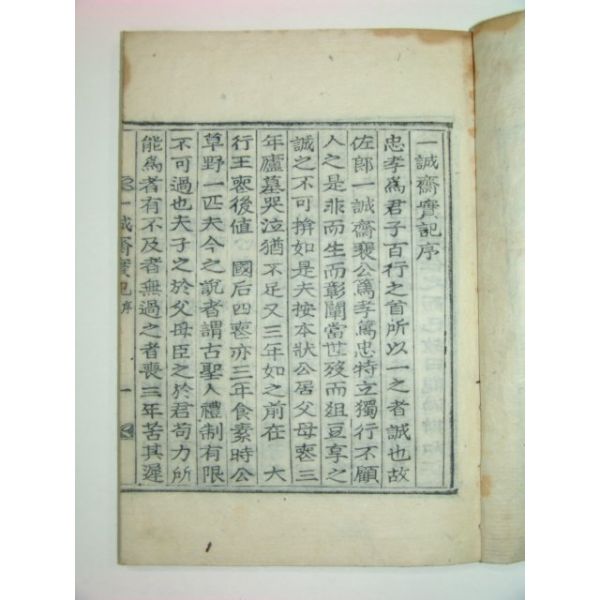 一誠齋實記序
忠孝爲君子百行之首所以一之者誠也故
佐郎一誠齋裵公爲孝爲忠特立獨行不顧
人之是非而生而彰闡當世歿而俎豆享之
誠之不可揜如是夫按本狀公居父母喪三
年廬墓哭泣猶不足又三年如之前在 大
行王喪後値 國后四喪亦三年食素時公
草野一匹夫今之說者謂古聖人禮制有限
不可過也夫子之於父母臣之於君苟力所
能爲者有不及者無過之者喪三年苦其遲
一誠齋實記序 一